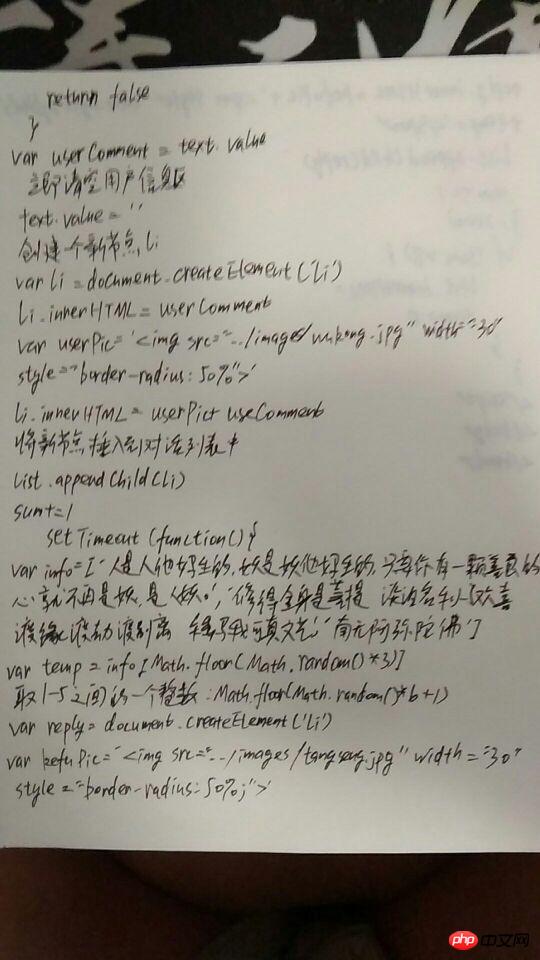 return false
}
var userComment = text.value
立即清空用户信息区
text.value = ''
创建一个新节点li
var li = document.createElement('li')
li.innerHTML = userComment
var userPic = '<img src="../images/wukong.jpg" width="30"
style="border-radius: 50%">'
li.innerHTML = userPic+ useComment
将新节点插入到对话列表中
list.appendChild(li)
sum+=1
setTimeout(function(){
var info=['人是人他妈生的,妖是妖他妈生的,只要你有一颗善良的
心就不再是妖,是人妖','修得全身是菩提
渡缘 渡劫 渡别离 '南无阿弥陀佛']
var temp = info[Math.floor(Math.random()*3)]
取1-5之间的一个整数:Math.floor(Math.random()*6+1)
var reply= document.createElement('li')
var kefuPic='<img src="../images/tangseng.jpg" width="30"
style="border-radius: 50%;">'
php中文网